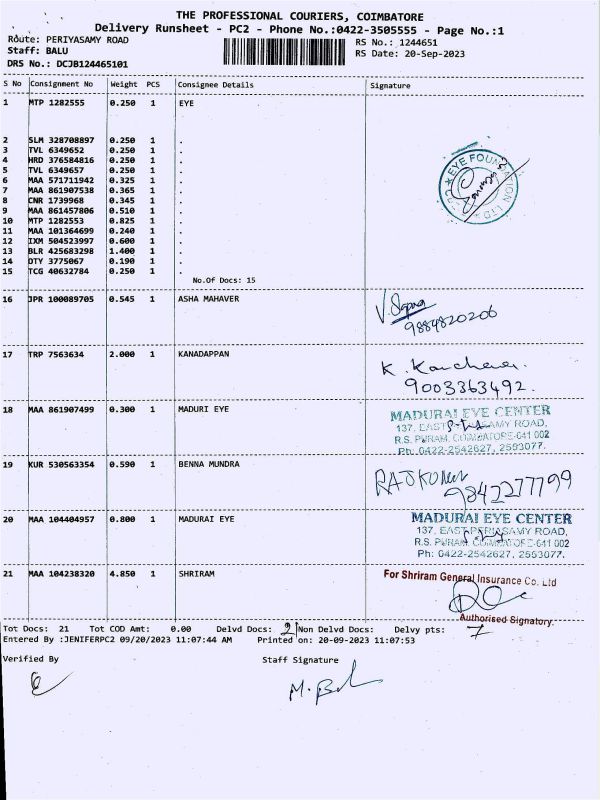 THE PROFESSIONAL COURIERS, COIMBATORE
Delivery Runsheet - PC2 - Phone No.:0422-3505555 - Page No.:1
Route: PERIYASAMY ROAD RS No.: 1244651
Staff: BALU RS Date: 20-Sep-2023
DRS No.: DCJB124465101
S No Consignment No Weight PCS Consignee Details Signature
1 MTP 1282555 0.250 1 EYE
2 SLM 328708897 0.250 1 .
3 TVL 6349652 0.250 1 .
4 HRD 376584816 0.250 1 .
5 TVL 6349657 0.250 1 .
6 MAA 571711942 0.325 1 .
7 MAA 861907538 0.365 1 .
8 CNR 1739968 0.345 1 .
9 MAA 861457806 0.510 1 .
10 MTP 1282553 0.825 1 .
11 MAA 101364699 0.240 1 .
12 IXM 504523997 0.600 1 .
13 BLR 425683298 1.400 1 .
14 OTY 3775067 0.190 1 .
15 TCG 40632784 0.250 1 .
EYE FOUNDATION LTD
No.Of Docs: 15
16 JPR 100089705 0.545 1 ASHA MAHAVER
9884820206
17 TRP 7563634 2.000 1 KANADAPPAN
9003363492.
18 MAA 861907499 0.300 1 MADURI EYE MADURAI EYE CENTER
137, EAST PERIASAMY ROAD,
R.S. PURAM, COIMBATORE-641 002
Ph: 0422-2542627, 2553077.
19 KUR 530563354 0.590 1 BENNA MUNDRA RAJKUMAR
9842277799
20 MAA 104404957 0.800 1 MADURAI EYE MADURAI EYE CENTER
137, EAST PERIASAMY ROAD,
R.S. PURAM, COIMBATORE-641 002
Ph: 0422-2542627, 2553077.
21 MAA 104238320 4.850 1 SHRIRAM For Shriram General Insurance Co. Ltd
Authorised Signatory.
Tot Docs: 21 Tot COD Amt: 0.00 Delvd Docs: 21 Non Delvd Docs: Delvy pts: 7
Entered By :JENIFERPC2 09/20/2023 11:07:44 AM Printed on: 20-09-2023 11:07:53
Verified By Staff Signature